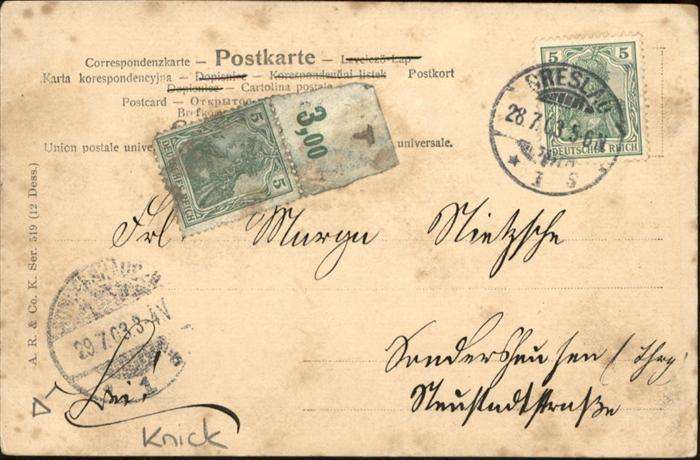 Correspondenzkarte – Postkarte – Levelező-Lap
Karta korespondencyjna – Dopisnice – Korespondenční listek Postkort
Dopisnice – Cartolina postale
Postcard – Открытое
Brefkort
Union postale universelle.
5
5
DEUTSCHES REICH
3,00
T
5
5
DEUTSCHES REICH
BRESLAU
28.7.03.5-6N
* 1 s
A. R. & Co. K. Ser. 519 (12 Dess.)
Frl. Margu Nietzsche
29.7.03.3-4V
1
Sondershausen / Thrg
Neustadtstraße
frei!
Knick